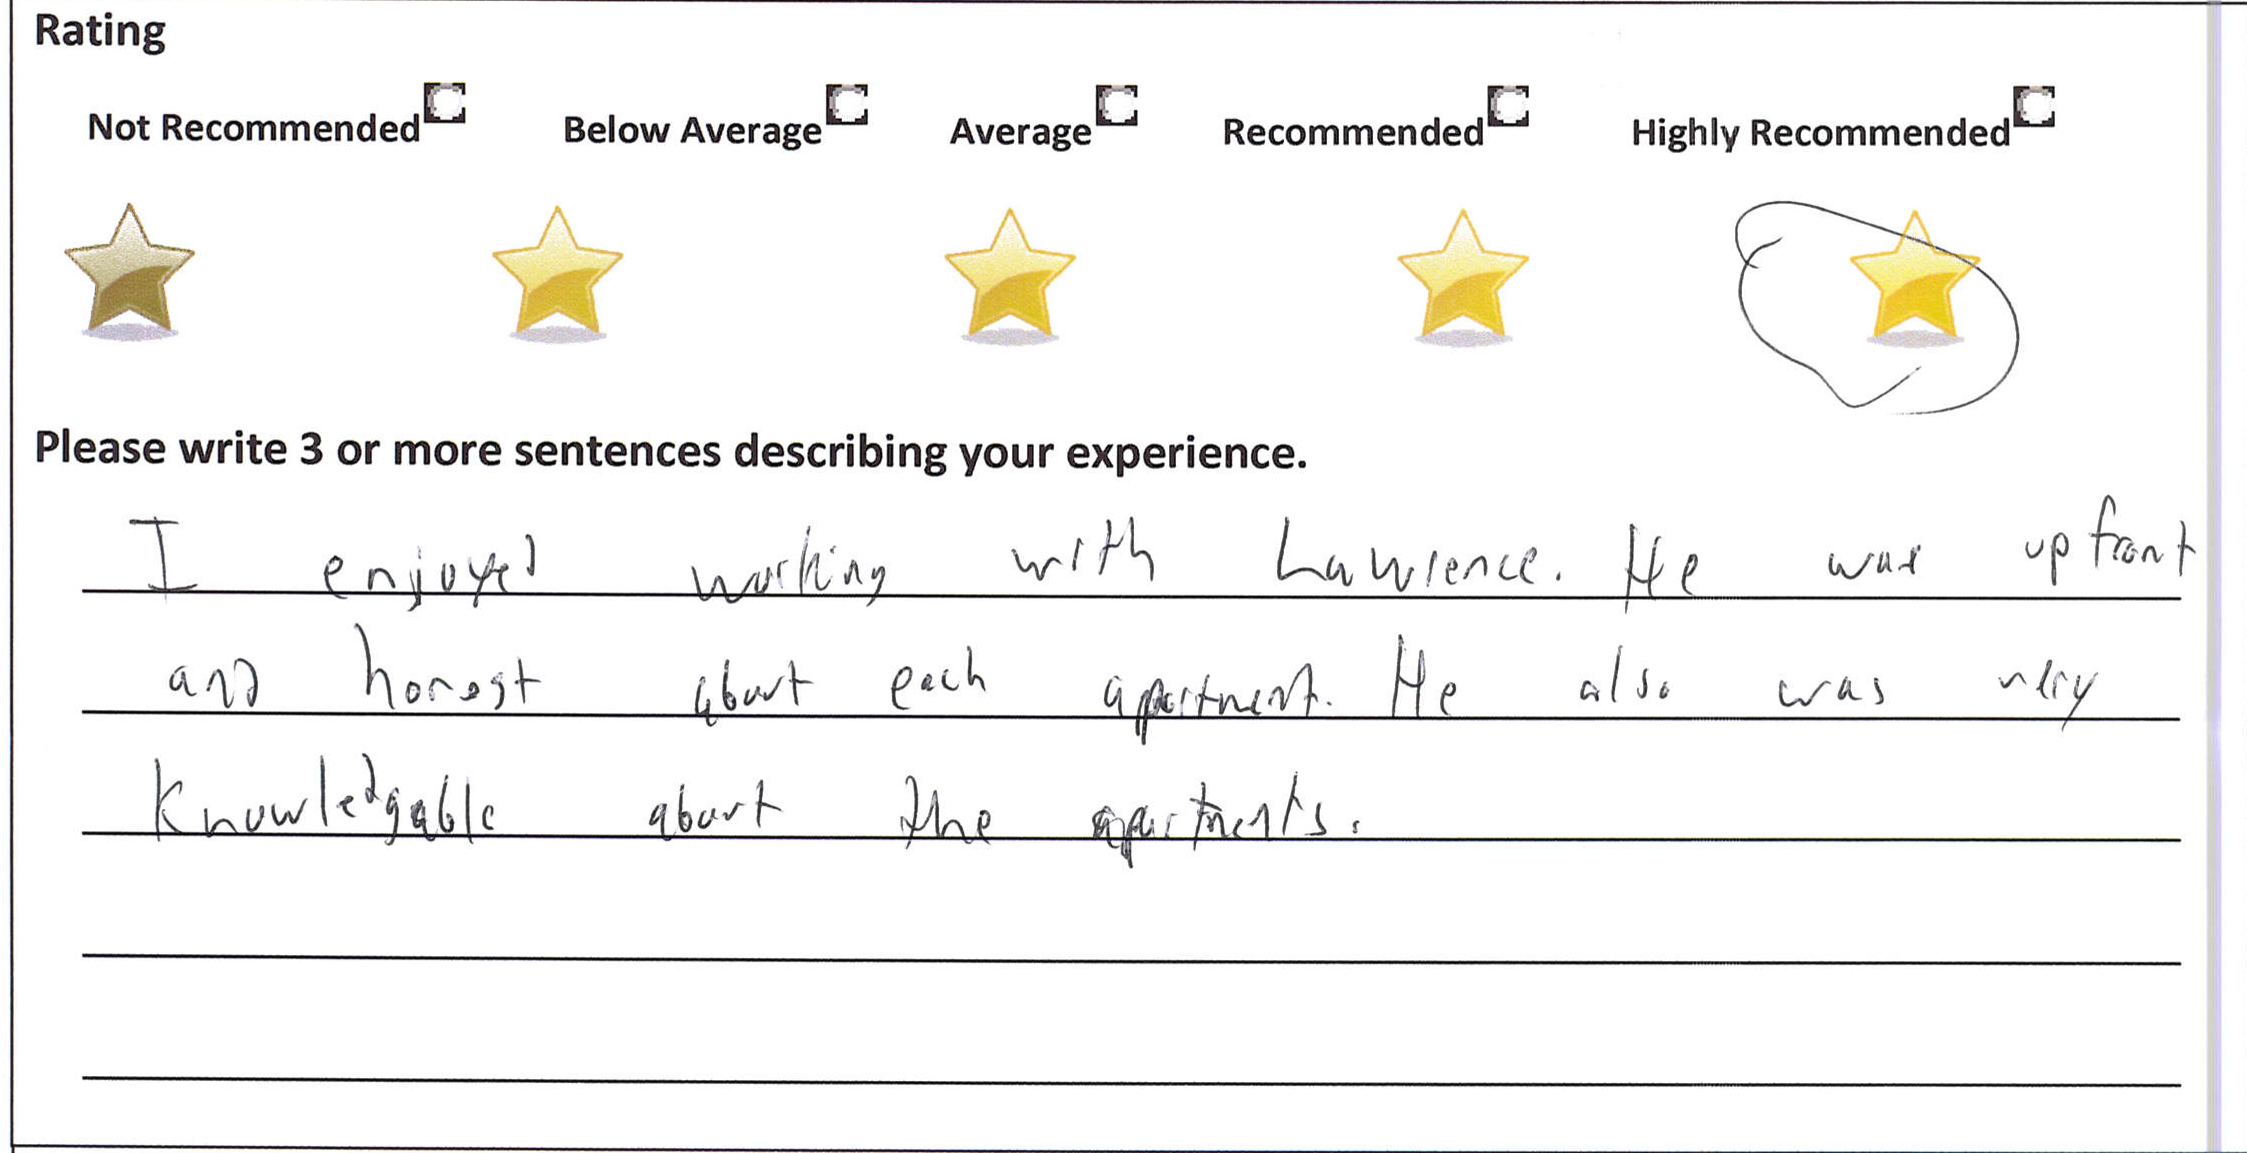 Rating
Not Recommended Below Average Average Recommended Highly Recommended
Please write 3 or more sentences describing your experience.
I enjoyed working with Lawrence. He was upfront
and honest about each apartment. He also was very
Knowledgable about the apartments.